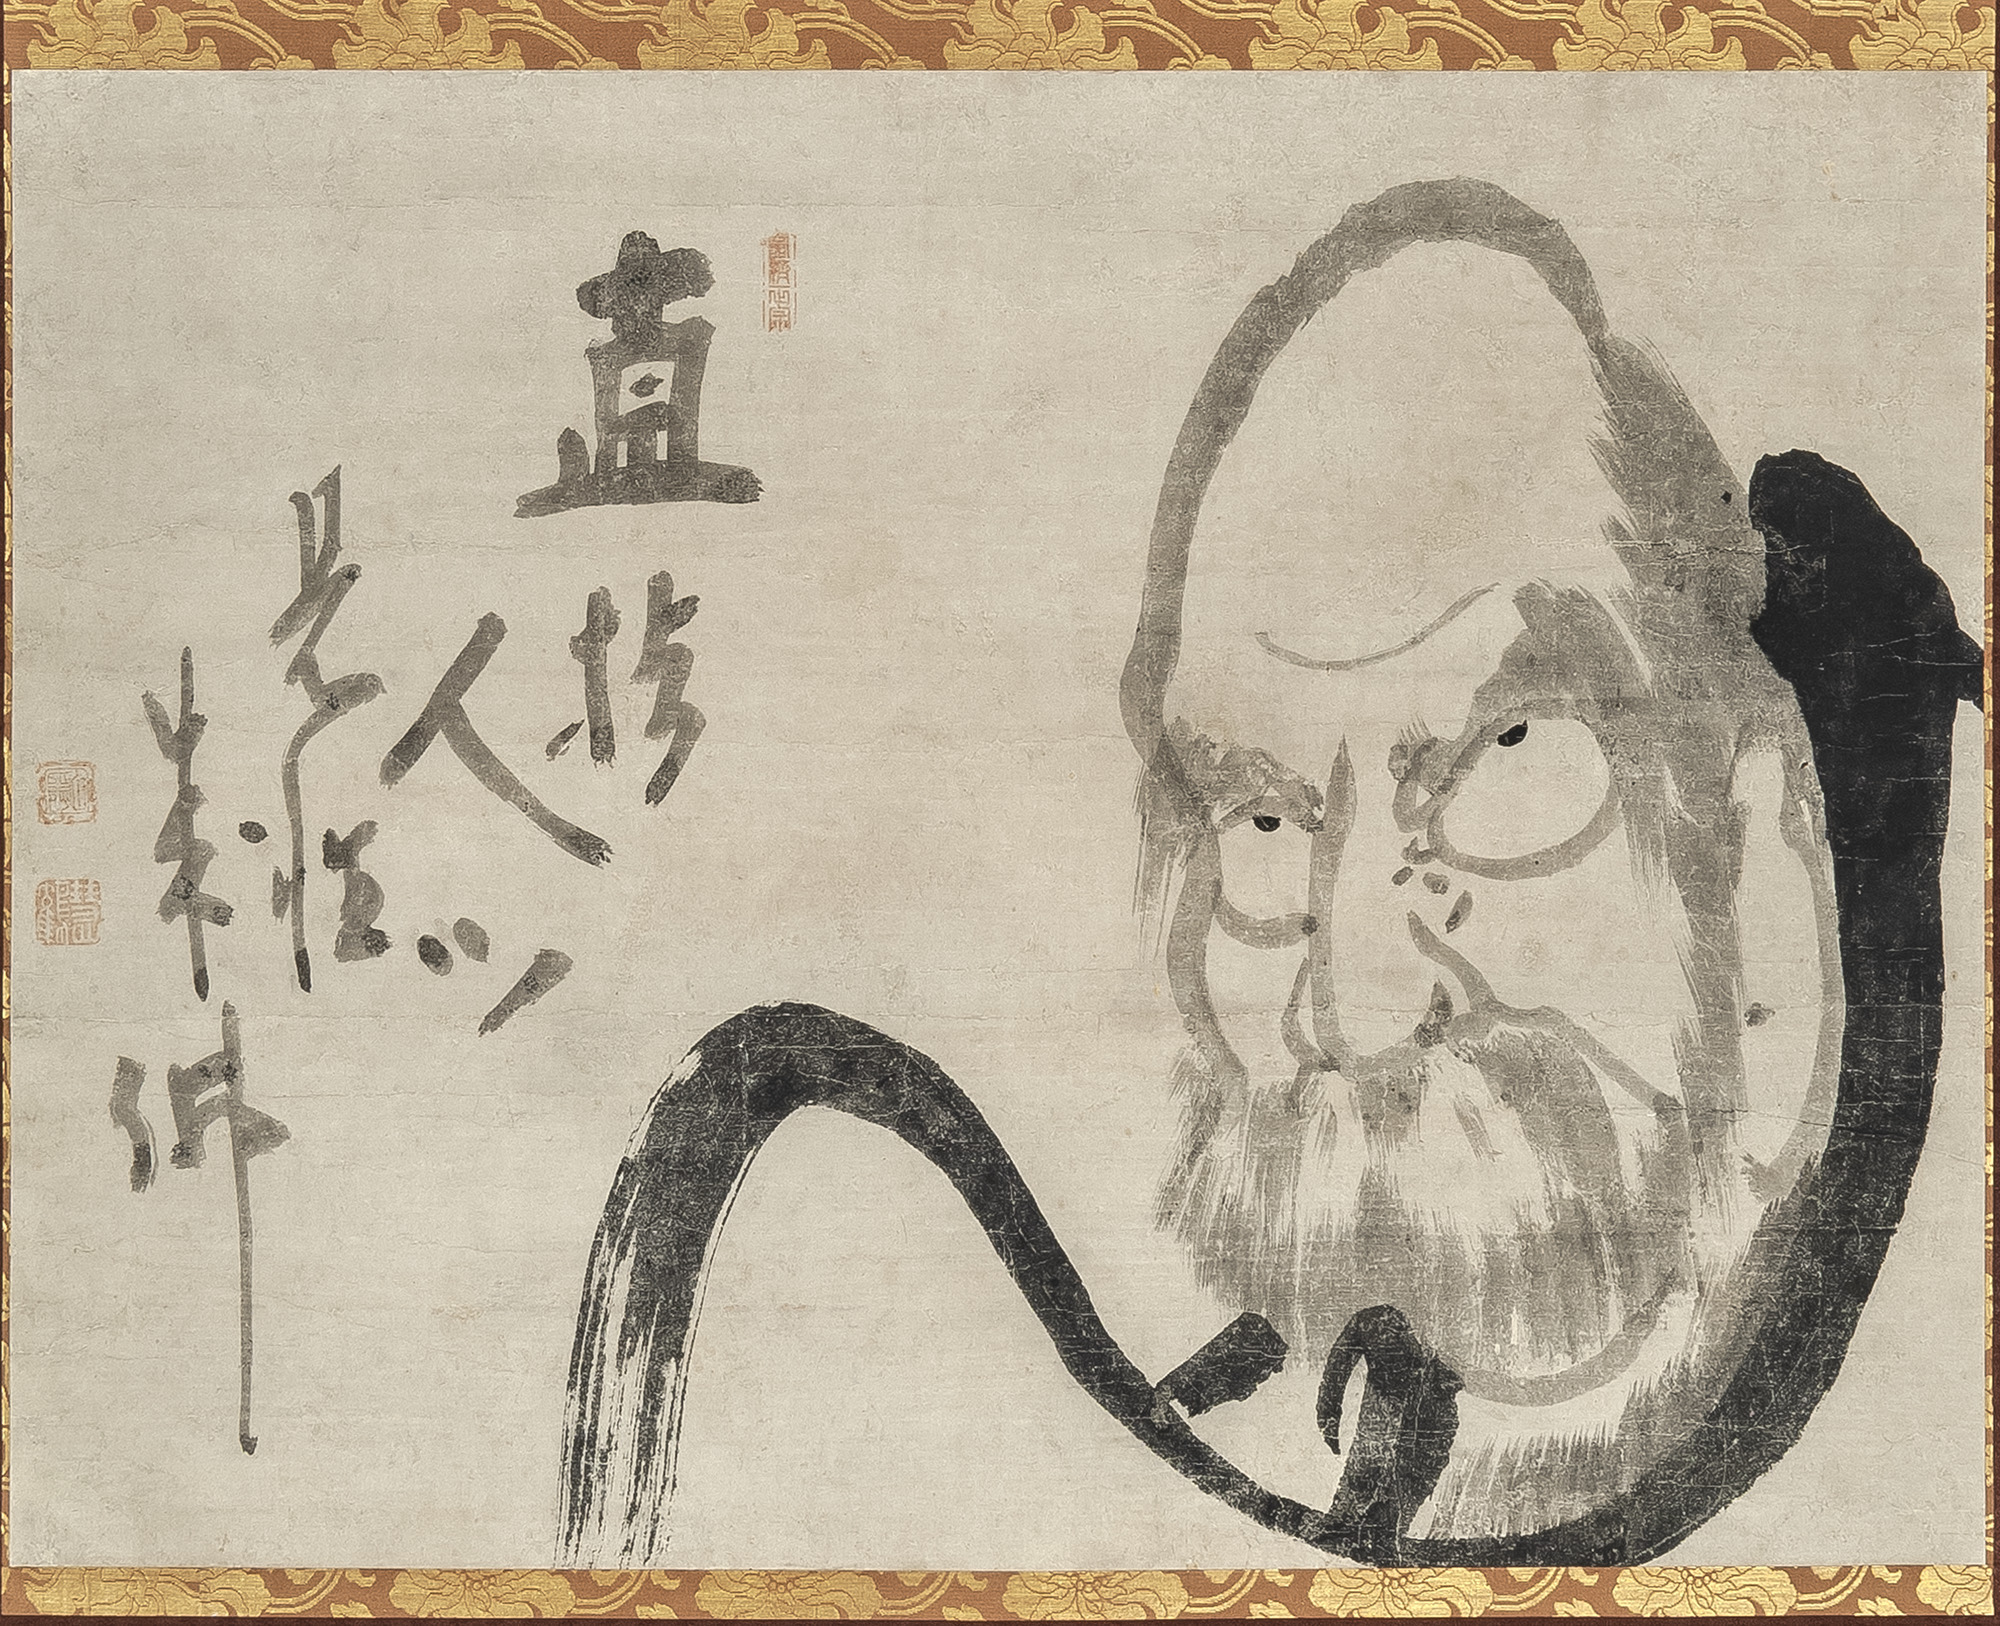 直指
人心
見性
成佛
慧鶴